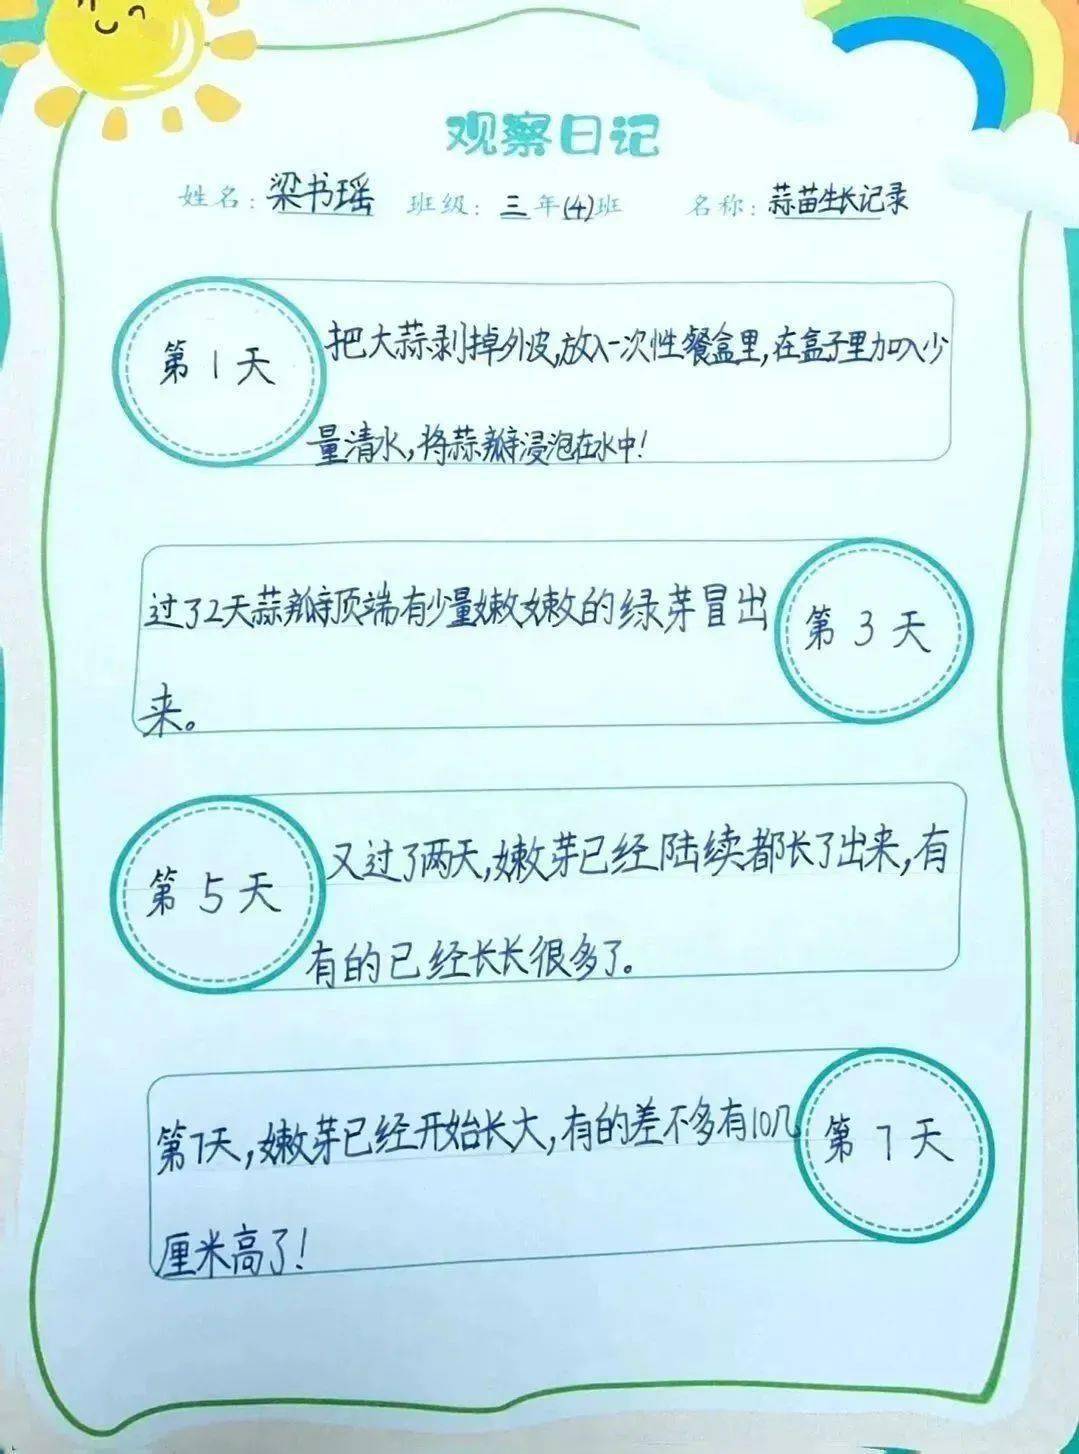 观察日记
姓名：梁书瑶 班级：三年(4)班 名称：蒜苗生长记录
第1天
把大蒜剥掉外皮,放入一次性餐盒里,在盒子里加入少
量清水,将蒜瓣浸泡在水中!
过了2天蒜瓣顶端有少量嫩嫩的绿芽冒出
来。
第3天
第5天
又过了两天,嫩芽已经陆续都长了出来,有
有的已经长长很多了。
第7天,嫩芽已经开始长大,有的差不多有10几
厘米高了!
第7天